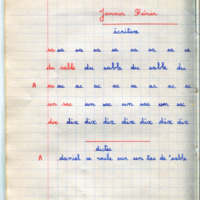 Janvier Février
écriture
sa sa sa sa sa sa sa sa
du sable du sable du sable du
A
ac ac ac ac ac ac
un sac un sac un sac un sac
dix dix dix dix dix dix dix
dictée
A daniel se roule sur un tas de sable